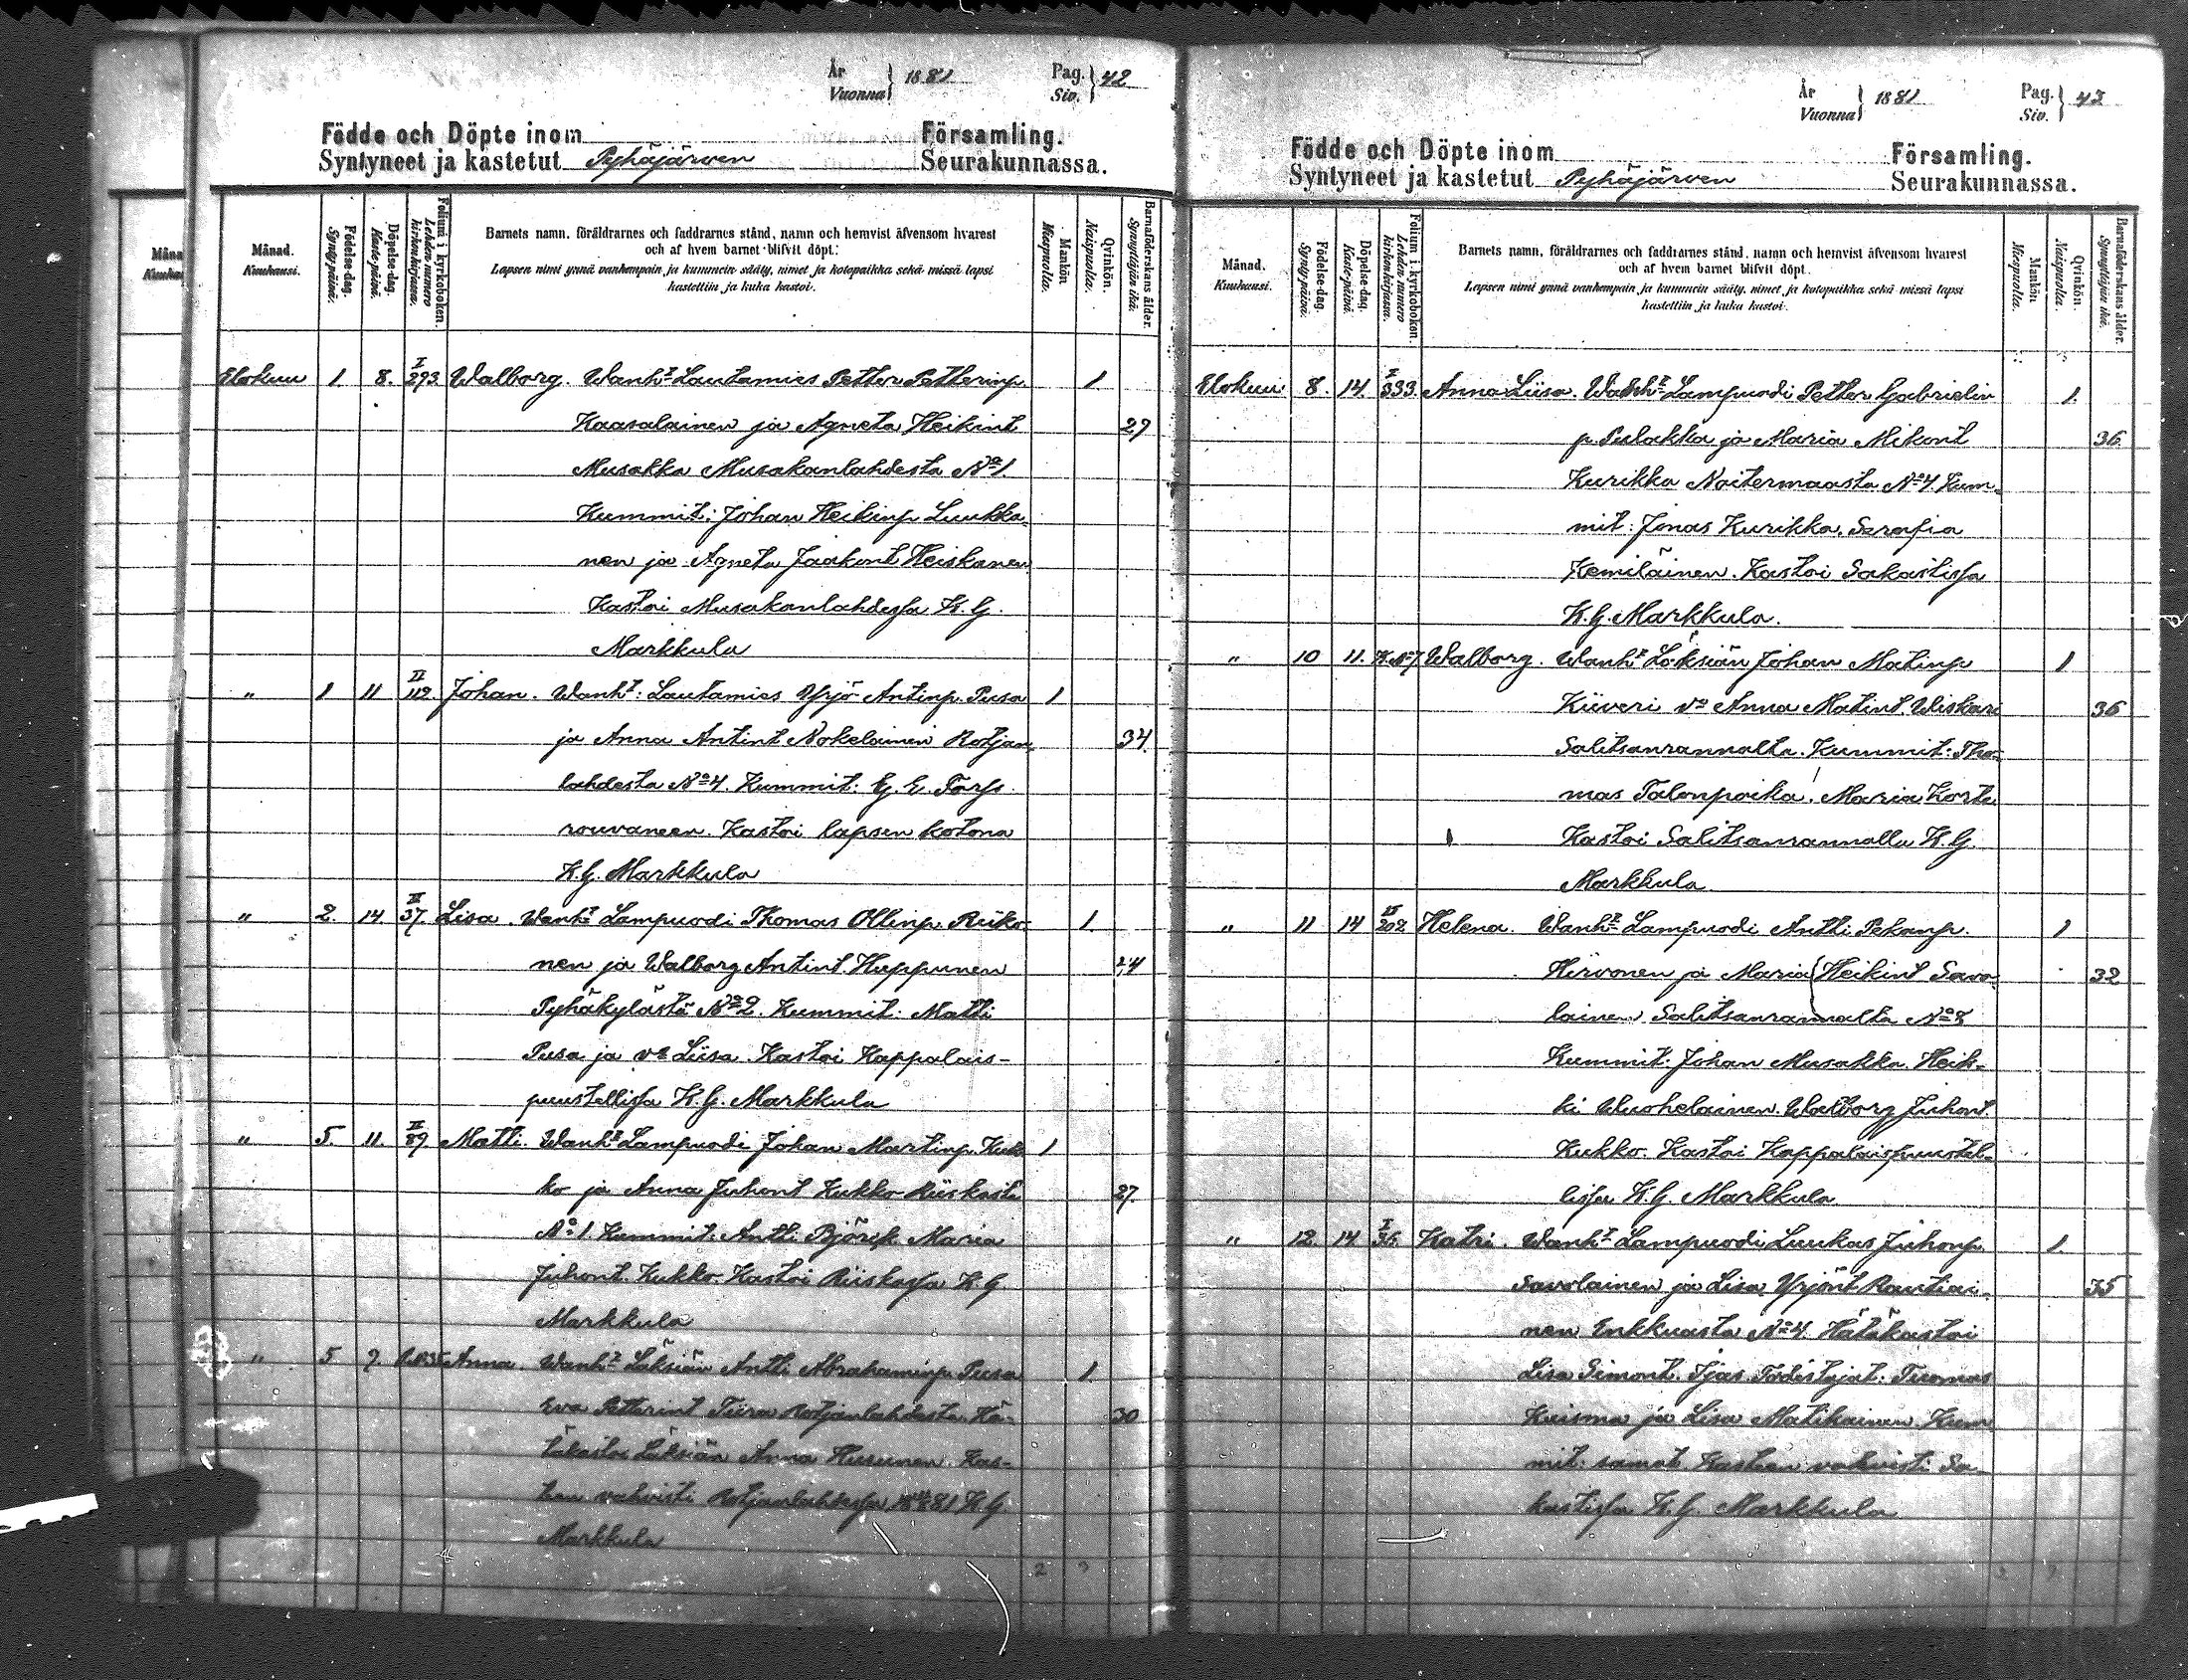 År
Vuonna } 1881
Pag.
Siv. } 42
Födde och Döpte inom Församling.
Syntyneet ja kastetut Pyhäjärven Seurakunnassa.
Månad.
Kuukausi.
Födelse-dag.
Syntypäivä.
Döpelse-dag.
Kastepäivä.
Folium i kyrkoboken.
Lehden numero kirkonkirjassa.
Barnets namn, föräldrarnes och faddrarnes stånd, namn och hemvist äfvensom hvarest
och af hvem barnet blifvit döpt.
Lapsen nimi ynnä vanhempain ja kummein sääty, nimet ja kotopaikka sekä missä lapsi
kastettiin ja kuka kastoi.
Mankön
Miespuolta.
Qvinkön.
Naispuolta.
Barnaföderskans ålder.
Synnyttäjän ikä.
Elokuu 1 8. I 293 Walborg. Wanht Lautamies Petter Petterinp 1
Kaasalainen ja Agneta Heikint 29
Musakka Musakanlahdesta No 1.
Kummit: Johan Heikinp Luukka
nen ja Agneta Jaakont Heiskanen
Kastoi Musakanlahdessa K. G.
Markkula
" 1 11 II 112. Johan. Wanht: Lautamies Yrjö Antinp. Pusa 1
ja Anna Antint Nokelainen Rotjan 34.
lahdesta No 4. Kummit: G. E. Forss
rouvaneen. Kastoi lapsen kotona
K. G. Markkula
" 2. 14 37. Lisa. Wanht Lampuodi Thomas Ollinp. Riiko- 1.
nen ja Walborg Antint. Huppunen 24
Pyhäkylästä No 2. Kummit: Matti
Pusa ja vo Liisa. Kastoi Kappalais-
puustellissa K. G. Markkula
" 5. 11. II 89 Matti. Wanht Lampuodi Johan Martinp. Kuk 1
ko ja Anna Juhont Kukko Riiskasta 27.
No 1. Kummit: Antti Björk. Maria
Juhont. Kukko. Kastoi Riiskassa K. G
Markkula
" 5 9. Anna. Wanht Läksiän Antti Abrahaminp. Pusa 1.
Eva Petterint Tiira Rotjanlahdesta. Hä- 30
täkastoi Läksiän Anna Husunen. Kas-
teen vahvisti Rotjanlahdessa K. G.
Markkula
År
Vuonna } 1881
Pag.
Siv. } 43
Födde och Döpte inom Församling.
Syntyneet ja kastetut Pyhäjärven Seurakunnassa.
Månad.
Kuukausi.
Födelse-dag.
Syntypäivä.
Döpelse-dag.
Kastepäivä.
Folium i kyrkoboken.
Lehden numero kirkonkirjassa.
Barnets namn, föräldrarnes och faddrarnes stånd, namn och hemvist äfvensom hvarest
och af hvem barnet blifvit döpt.
Lapsen nimi ynnä vanhempain ja kummein sääty, nimet ja kotopaikka sekä missä lapsi
kastettiin ja kuka kastoi.
Mankön
Miespuolta.
Qvinkön.
Naispuolta.
Barnaföderskans ålder.
Synnyttäjän ikä.
Elokuu 8. 14. I 333. Anna Liisa. Wanht Lampuodi Petter Gabrielin 1.
p. Pulakka ja Maria Mikont 36.
Kurikka Noitermaasta No 4. Kum-
mit: Jonas Kurikka. Serafia
Kemiläinen. Kastoi Sakastissa
K. G. Markkula.
" 10 11. Walborg. Wanht Läksiän Johan Matinp 1
Kiiveri vo Anna Matint. Wiskari 36
Salitsanrannalta. Kummit: Tho-
mas Talonpoika. Maria Korte
Kastoi Salitsanrannalla K. G.
Markkula
" 11 14 II 202 Helena. Wanht Lampuodi Antti Pekanp. 1
Hirvonen ja Maria Heikint Savo- 32
lainen. Salitsanrannalta No 8
Kummit: Johan Musakka. Heik-
ki Wuohelainen. Walborg Juhont.
Kukko. Kastoi Kappalaispuustel-
lissa K. G. Markkula
" 12. 14 I 36. Katri. Wanht Lampuodi Luukas Juhonp. 1.
Savolainen ja Lisa Yrjönt Rautiai- 35
nen Enkkuasta No 4. Hätäkastoi
Lisa Simont. Ijas. Todistajat: Tuomas
Kuisma ja Lisa Matikainen. Kum
mit: samat. Kasteen vahvisti Sa-
kastissa K. G. Markkula